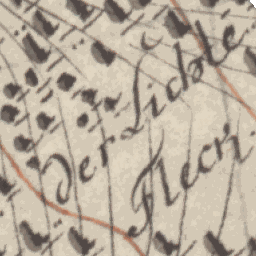 Der Lichte
Fleck